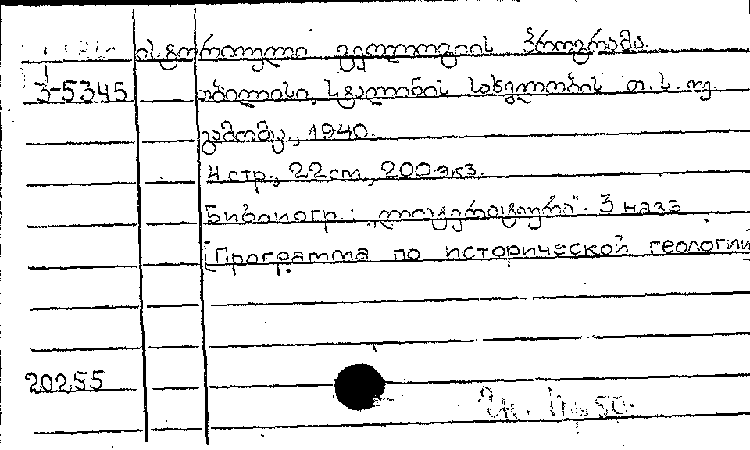 ისტორიული გეოლოგიის პროგრამა.
3-5345 თბილისი, სტალინის სახელობის თ. ს. უ.
გამომც., 1940.
4 стр., 22 cm, 200 экз.
Библиогр.: „ლიტერატურა" 3 назв
[Программа по исторической геологии
20255